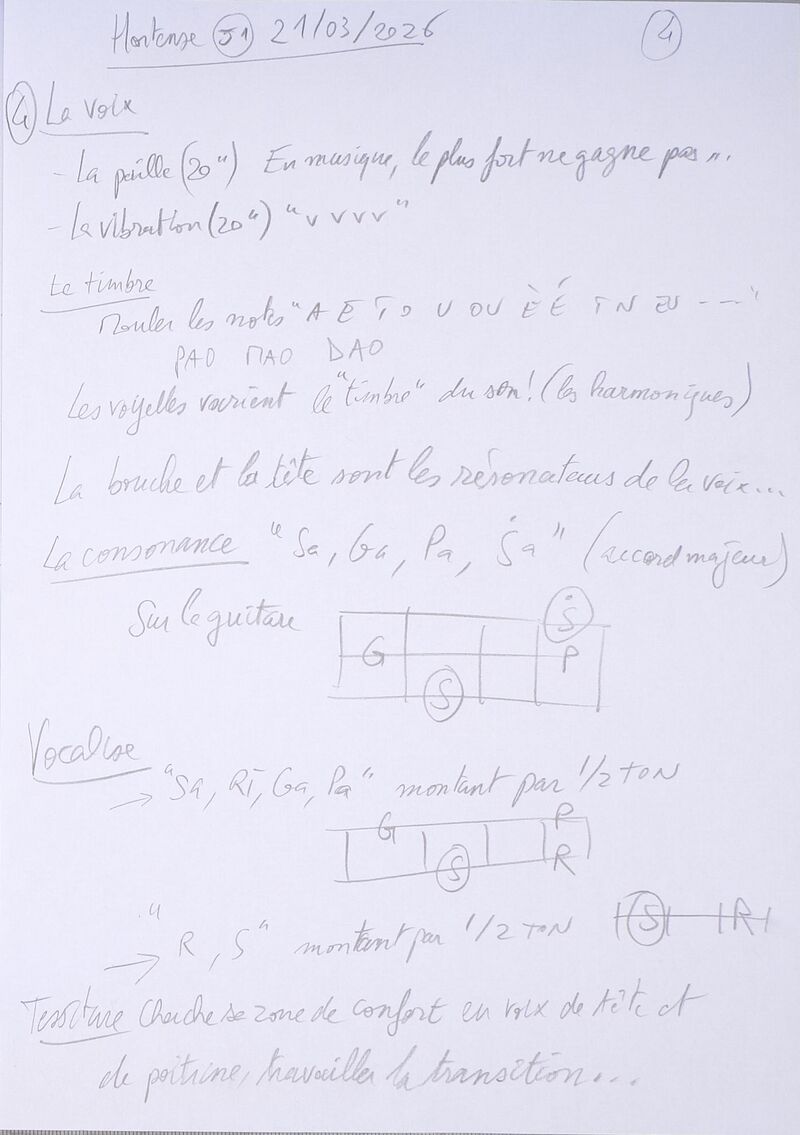 Hortense J1 21/03/2026 4
4 La voix
- La paille (20") En musique, le plus fort ne gagne pas...
- La vibration (20") "v v v v"
Le timbre
Rouler les nots "A E I O U OU È É IN EU ---"
PAO MAO DAO
Les voyelles varient le "timbre" du son! (les harmoniques)
La bouche et la tête sont les résonateurs de la voix...
La consonance "Sa, Ga, Pa, Ṡa" (accord majeur)
Sur la guitare
Ṡ
G P
S
Vocalise
→ "Sa, Ri, Ga, Pa" montant par 1/2 TON
G P
S R
→ "R, S" montant par 1/2 TON S R
Tessiture Cherche se zone de confort en voix de tête et
de poitrine, travailler la transition...